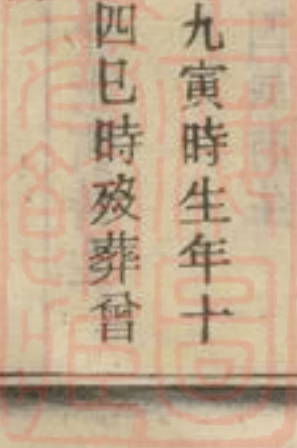 九寅時生年十
四巳時歿葬曾